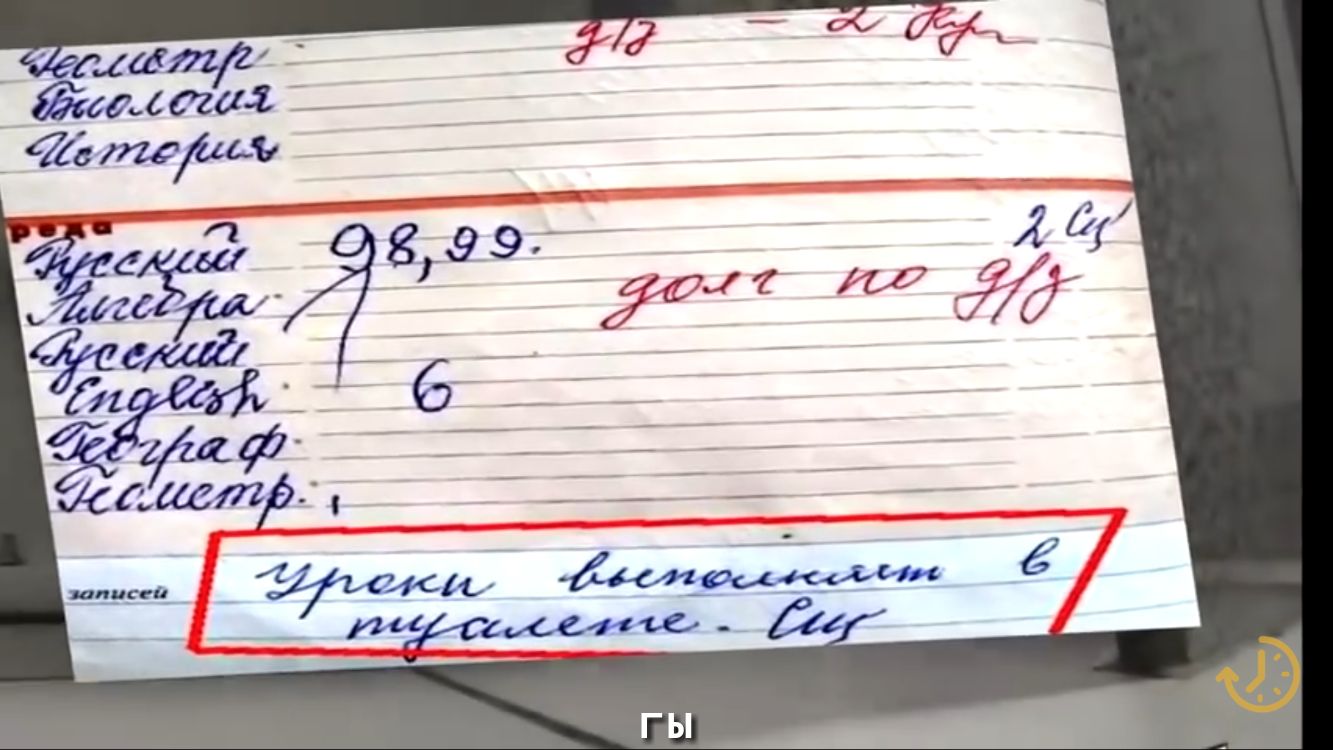 Геометр д/з - 2
Биология
История
реда
Русский 98,99. 2 Сщ
Алгебра долг по д/з
Русский
English 6
Географ.
Геометр.
записей
Уроки выполняет в
туалете. Сщ
ГЫ